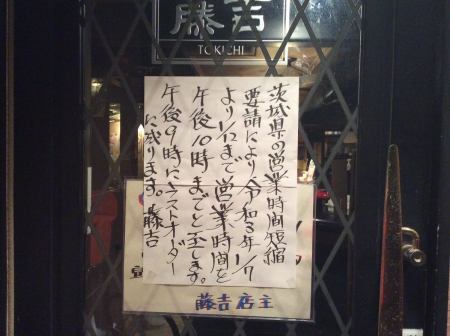 藤吉
TOKICHI
茨城県の営業時間短縮
要請により令和3年1/7
より1/12まで営業時間を
午後10時までと至します。
午後9時にラストオーダー
に成ります。藤吉
藤吉店主